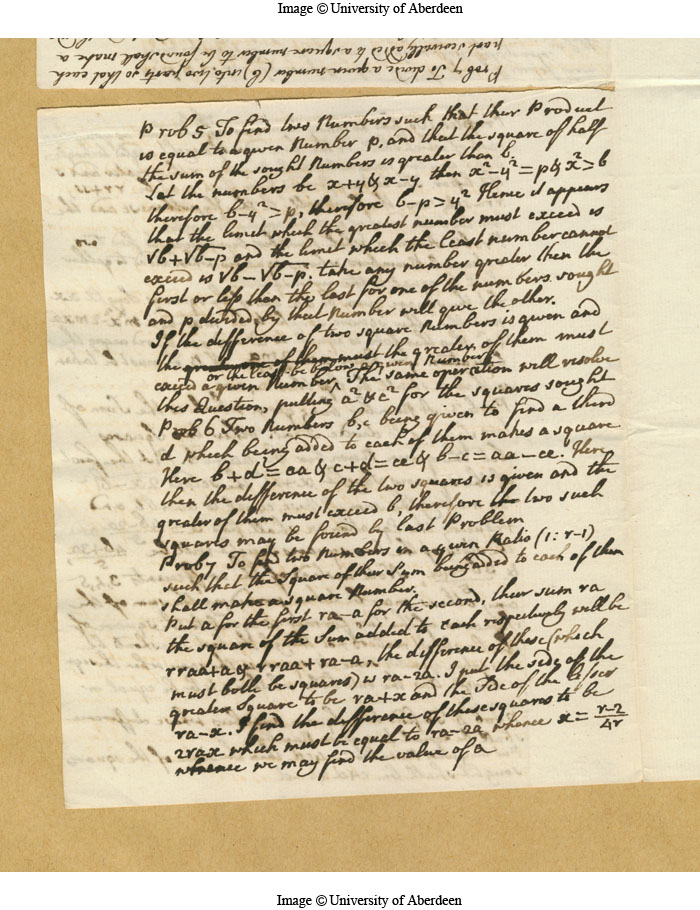 Image © University of Aberdeen
Prob 7 To divide a given number (b) into two parts so that each
part severally added to a square number to be found shall make a
Prob 5. To find two Numbers such that their Product
is equal to a given Number p, and that the square of half
the sum of the sought Numbers is greater than b.
Let the numbers be x+y & x-y. then x²-y² = p & x² > b
therefore b-y² > p, therefore b-p > y² Hence it appears
that the limit which the greatest number must exceed is
√b+√b-p and the limit which the least number cannot
exceed is √b-√b-p. take any number greater then the
first or less than the last for one of the numbers sought
and p divided by that Number will give the other.
If the difference of two square Numbers is given and
the greatest one of them must the greater of them must
or the least be below a given Number
exceed a given Number, The same operation will resolve
this Question, putting a² & e² for the squares sought
Prob 6. Two Numbers b, c being given to find a third
d which being added to each of them makes a square
Here b+d = aa & c+d = ee & b-c = aa-ee. Here
then the difference of the two squares is given and the
greater of them must exceed b, therefore the two such
squares may be found by last Problem
Prob 7 To find two Numbers in a given Ratio (1:r-1)
such that the Square of their Sum being added to each of them
shall make a square Number.
Put a for the first ra-a for the second, their sum ra
the square of the Sum added to each respectively will be
rraa+a & rraa+ra-a, the difference of these (which
must both be squares) is ra-2a. I put the side of the
greater Square to be ra+x and the Side of the lesser
ra-x. I find the difference of these squares to be
2rax which must be equal to ra-2a whence x = r-2/4r
whence we may find the value of a
Image © University of Aberdeen